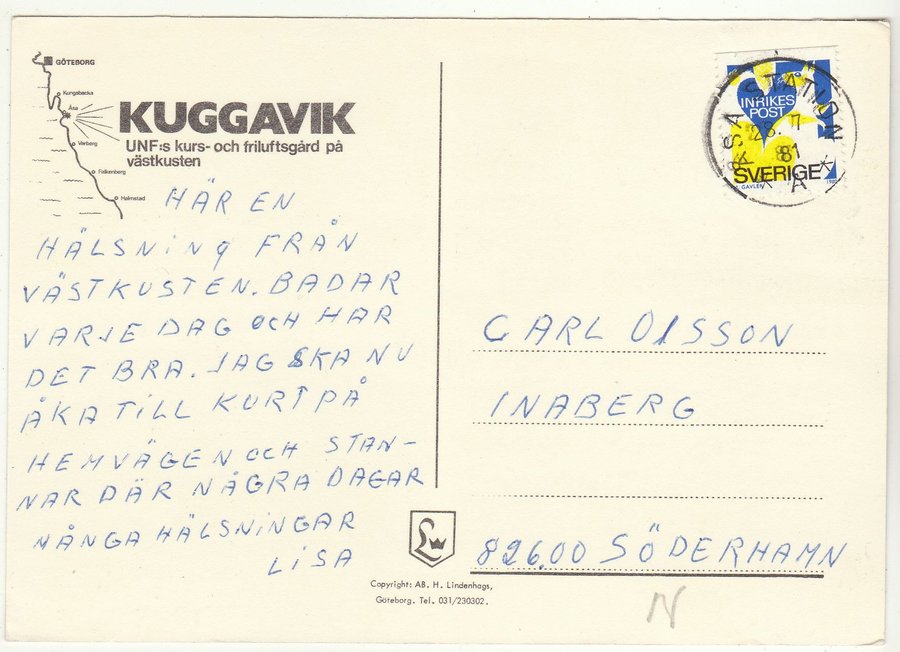 GÖTEBORG
Kungsbacka
Åsa
Varberg
Falkenberg
Halmstad
KUGGAVIK
UNF:s kurs- och friluftsgård på
västkusten
HÄR EN
HÄLSNING FRÅN
VÄSTKUSTEN. BADAR
VARJE DAG OCH HAR
DET BRA. JAG SKA NU
ÅKA TILL KURT PÅ
HEMVÄGEN OCH STAN-
NAR DÄR NÅGRA DAGAR
MÅNGA HÄLSNINGAR
LISA
INRIKES
POST
SVERIGE
GAVLER
1980
STATION
28. 7
81
CARL OLSSON
INABERG
826.00 SÖDERHAMN
Copyright: AB. H. Lindenhags,
Göteborg. Tel. 031/230302.
N